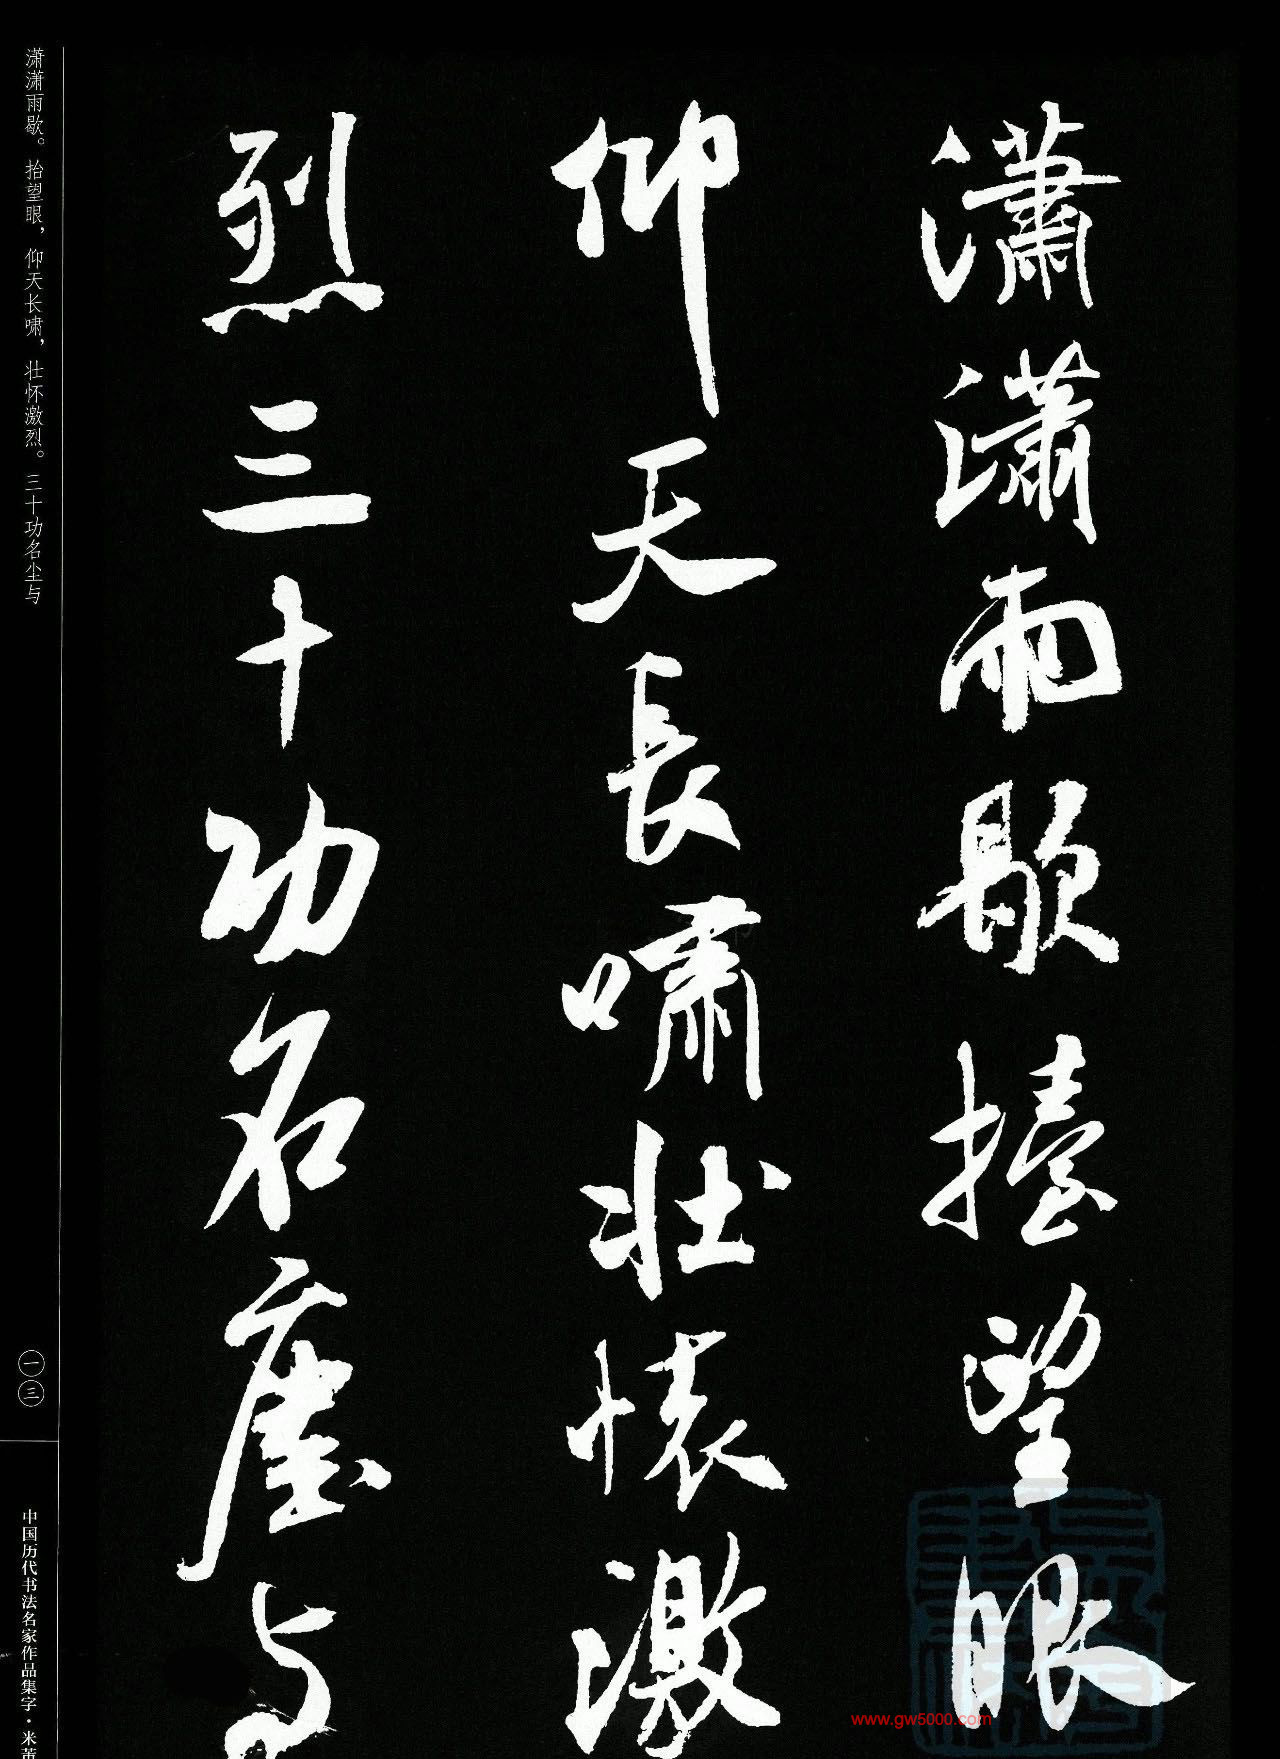 瀟瀟雨歇擡望眼
仰天長嘯壯懷激
烈三十功名塵与
潇潇雨歇。抬望眼，仰天长啸，壮怀激烈。三十功名尘与
一三
中国历代书法名家作品集字·米芾
www.gw5000.com